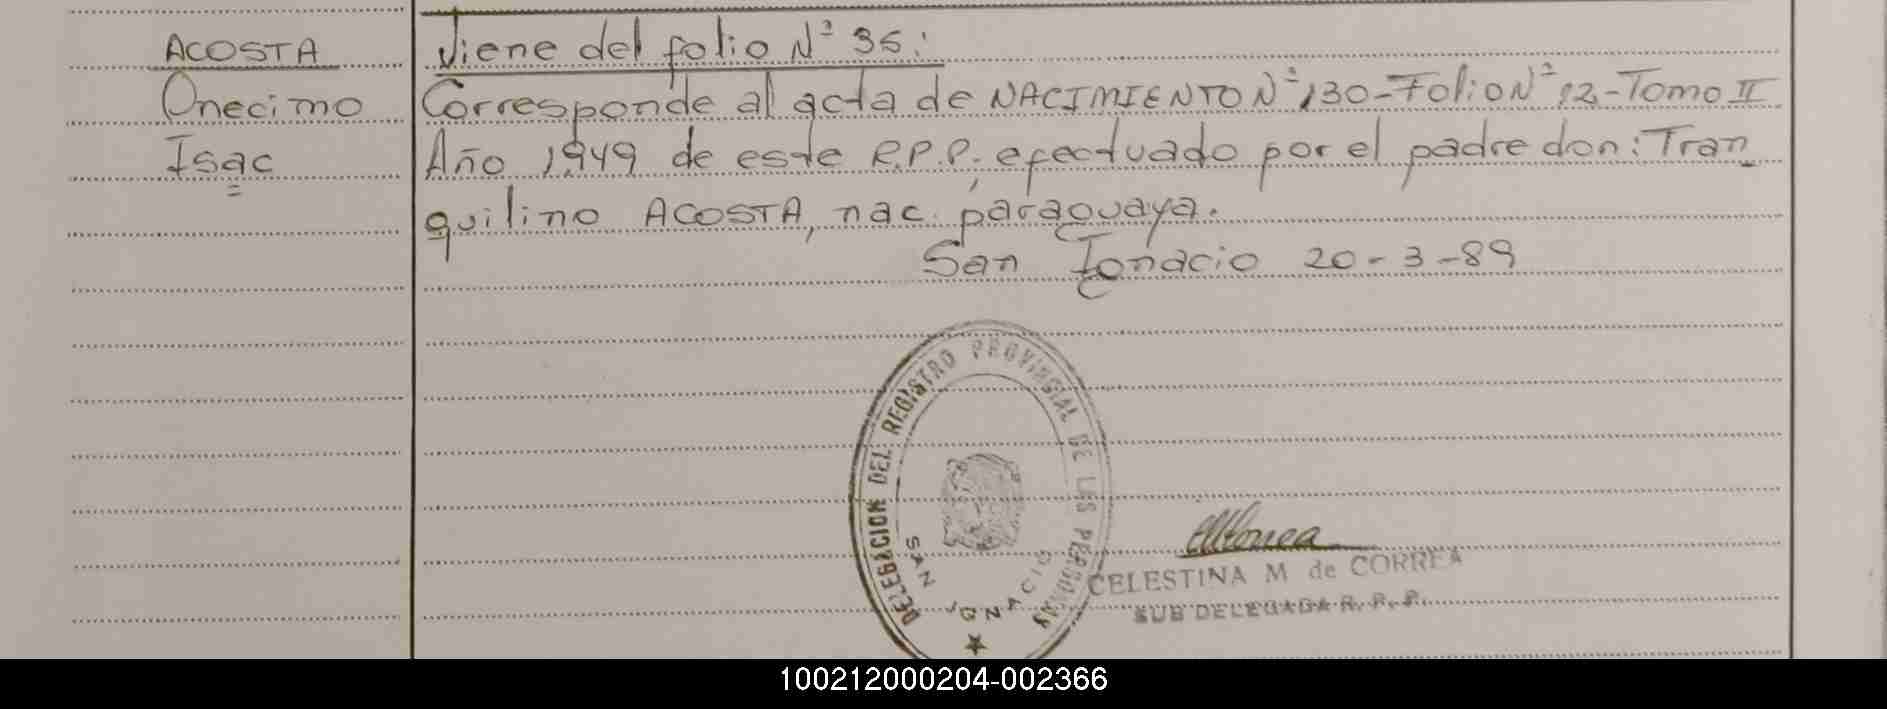 ACOSTA
Onecimo
Isac
Viene del folio Nº 35:
Corresponde al acta de NACIMIENTO Nº 130-Folio Nº 12-Tomo II
Año 1949 de este R.P.P. efectuado por el padre don: Tran
quilino ACOSTA, nac. paraguaya.
San Ignacio 20-3-89
DELEGACION DEL REGISTRO PROVINCIAL DE LAS PERSONAS
SAN IGNACIO
CELESTINA M de CORREA
SUB DELEGADA R. P. P.
100212000204-002366